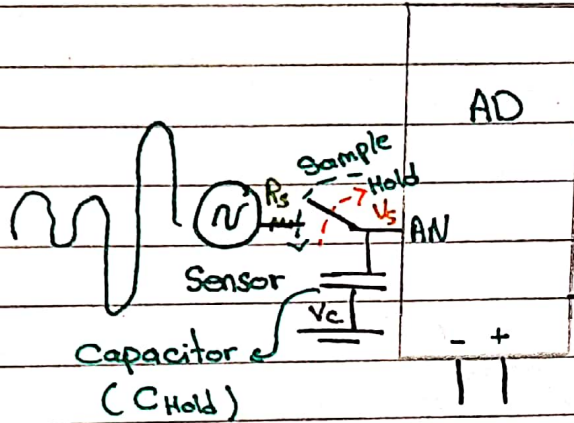 AD
Sample
Hold
Rs
Vs
AN
Sensor
Vc
Capacitor
(CHold)
- +